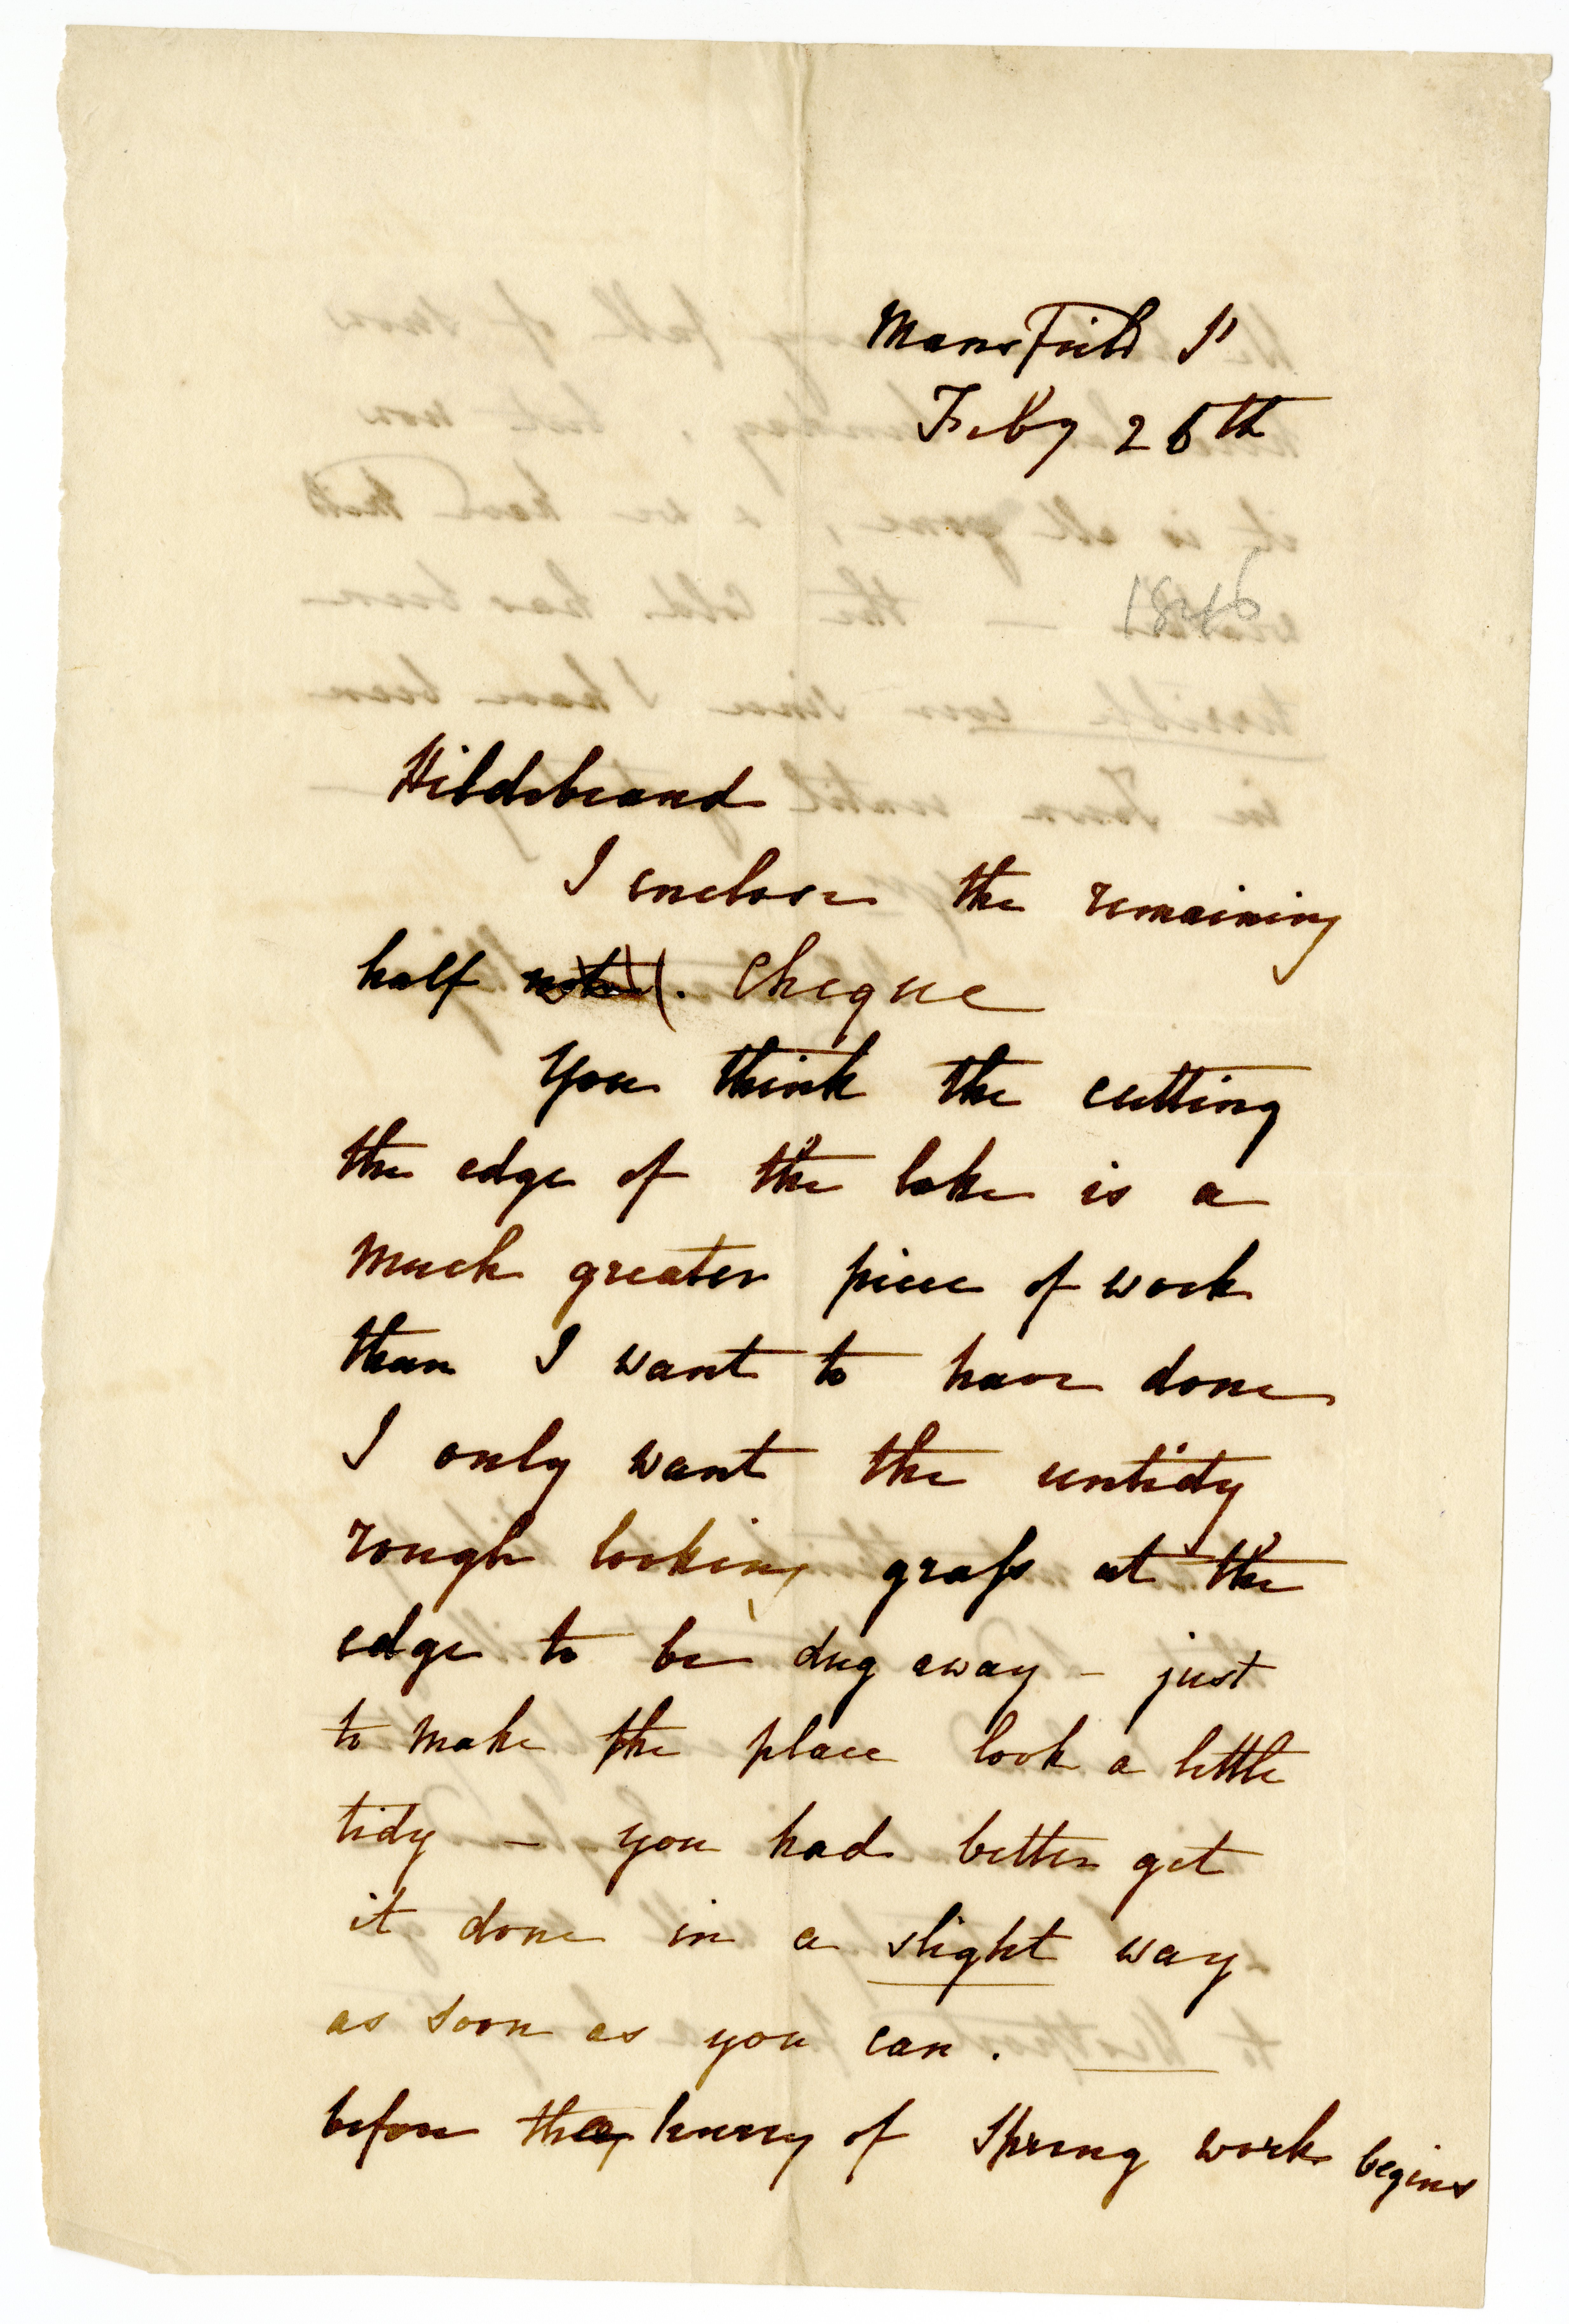 Mansfield St
Feby 26th
1846
Hildebrand
I enclose the remaining
half note. Cheque
You think the cutting
the edge of the lake is a
much greater piece of work
than I want to have done
I only want the untidy
rough looking grass at the
edge to be dug away - just
to make the place look a little
tidy - you had better get
it done in a slight way
as soon as you can.
before the hurry of Spring work begins